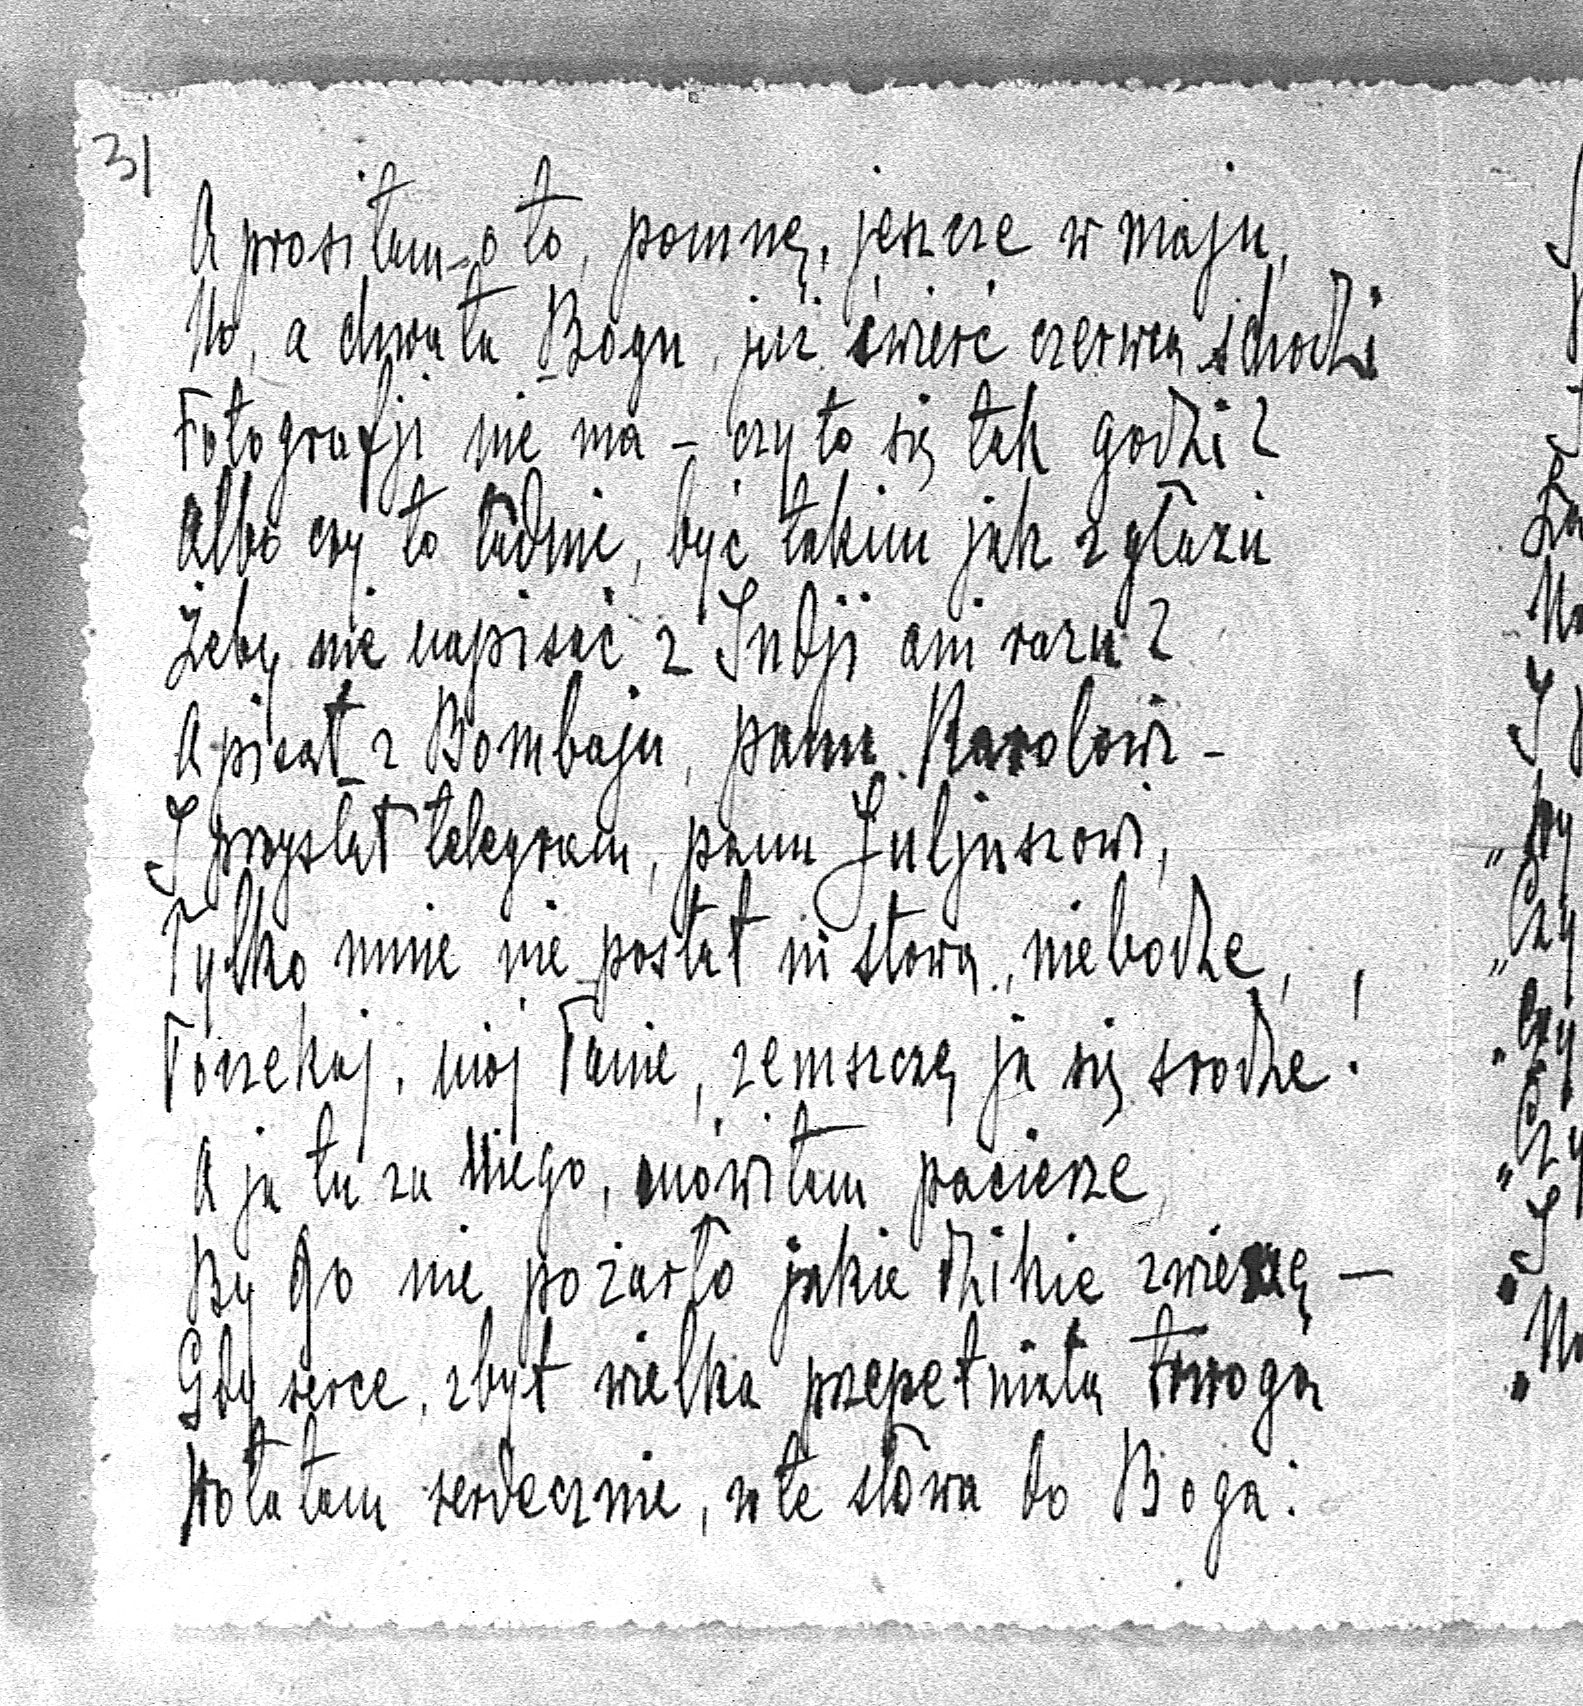 3/
A prosiłam o to, pomnę, jeszcze w maju,
No, a chwała Bogu, już ćwierć czerwca schodzi
Fotografji nie ma – czy to się tak godzi?
Albo czy to ładnie, być takim jak z głazu
Żeby nie napisać z Indji ani razu?
A pisał z Bombaju, panu Karolowi –
I przysłał telegram, panu Juljuszowi,
Tylko mnie nie posłał ni słowa, niebodze,
Poczekaj, mój Panie, zemszczę ja się srodze!
A ja tu za Niego, mówiłam pacierze,
By Go nie pożarło jakie dzikie zwierzę –
Gdy serce, zbyt wielka przepełniała trwoga
Wołałam serdecznie, w te słowa do Boga: